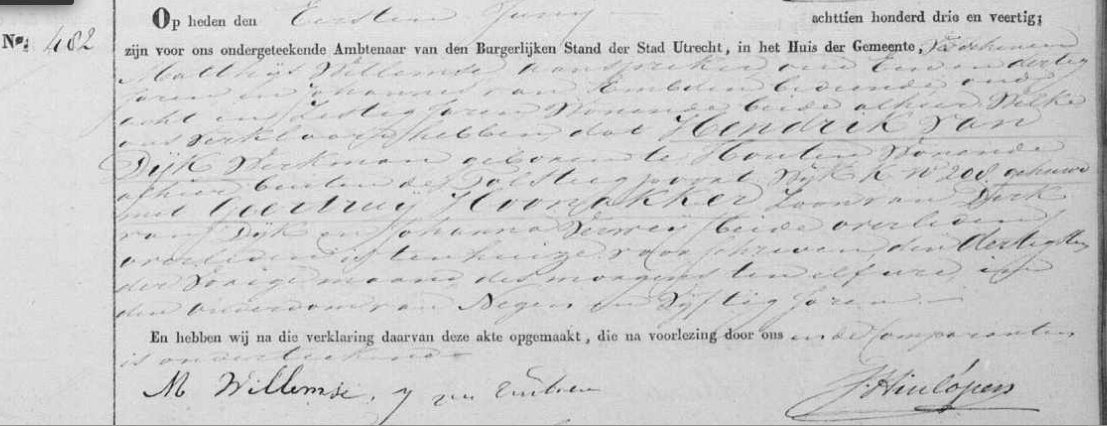 Op heden den Eersten Juny achttien honderd drie en veertig;
No: 482
zijn voor ons ondergeteekende Ambtenaar van den Burgerlijken Stand der Stad Utrecht, in het Huis der Gemeente, Verschenen
Matthijs Willemse aanspreker oud Een en dertig
Jaren en Johannes van Embden bediende oud
acht en zestig Jaren Wonende beide alhier Welke
ons verklaard hebben, dat Hendrik van
Dijk Werkman geboren te Houten Wonende
alhier buiten de Tolsteegpoort Wijk K No 208. gehuwd
met Geertruij Hoonakker Zoon van Dirk
van Dijk en Johanna Verweij beide overleden
overleden is ten huize voorschreven, den dertigsten
der Vorige maand, des morgens ten elf ure, in
den ouderdom van Negen en Vijftig Jaren
En hebben wij na die verklaring daarvan deze akte opgemaakt, die na voorlezing door ons en de Comparanten
is onderteekend
M Willemse. J van Embden J. Hinlópen